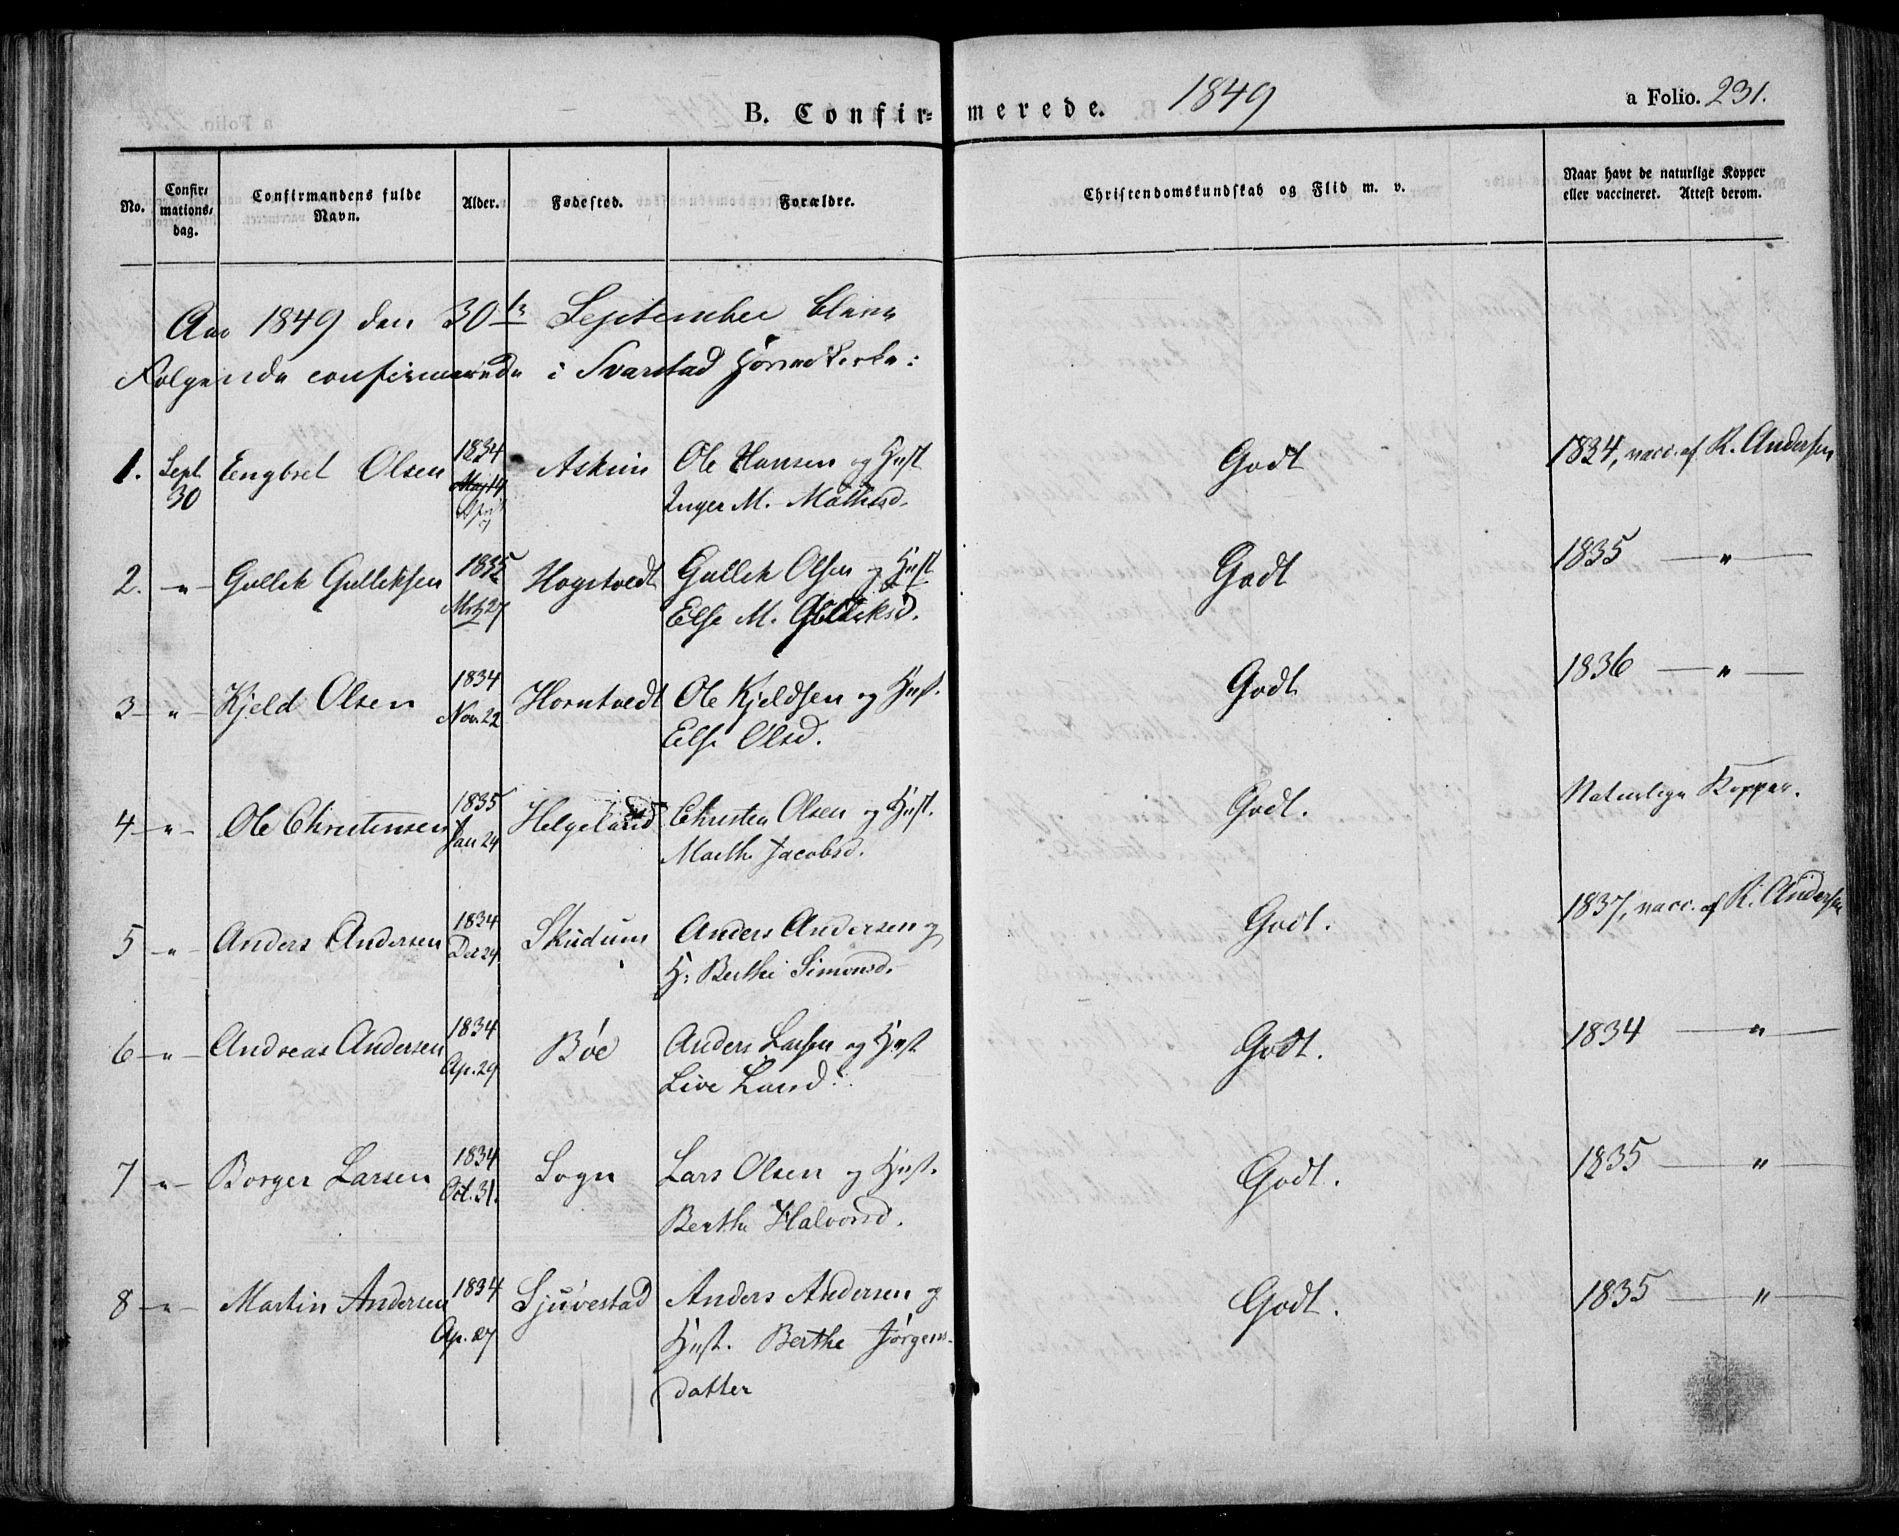 B. Confir= merede. 1849 a Folio. 231.
No. Confir= mations= dag. Confirmandens fulde Navn. Alder. Fødested. Forældre. Christendomskundskab og Flid m. v. Naar havt de naturlige Kopper eller vaccineret. Attest derom.
Aar 1849 den 30te September bleve
Følgende confirmerede i Svarstad Hovedkirke:
1. Sept 30 Engbret Olsen 1834 Askim Ole Hansen og Hust Godt 1834, vacc. af R. Andersen
Inger M. Mathisd.
2. -„- Gullik Gulliksen 1835 Hogstvedt Gullik Olsen og Hust Godt 1835 —„—
Mrtz 27 Else M. Gulliksd.
3 -„- Kjeld Olsen 1834 Horntvedt Ole Kjeldsen og Hust. Godt 1836 —„—
Nov. 22 Else Olsd.
4 -„- Ole Christensen 1835 Helgeland Christen Olsen og Hust. Godt. Naturlige Kopper.
Jan 24 Marthe Jacobsd.
5 -„- Anders Andersen 1834 Skudum Anders Andersen og Godt. 1837, vacc. af R. Andersen
Dec 24 H. Berthe Simonsd.
6 -„- Andreas Andersen 1834 Bøe Anders Larsen og Hust Godt. 1834 —„—
Ap. 29 Live Larsd.
7 -„- Borger Larsen 1834 Sogn Lars Olsen og Hust. Godt. 1835 —„—
Oct. 31. Berthe Halvorsd.
8 -„- Martin Andersen 1834 Ljuvestad Anders Andersen og Godt. 1835 —„—
Ap. 27 Hust. Berthe Jørgens-
datter